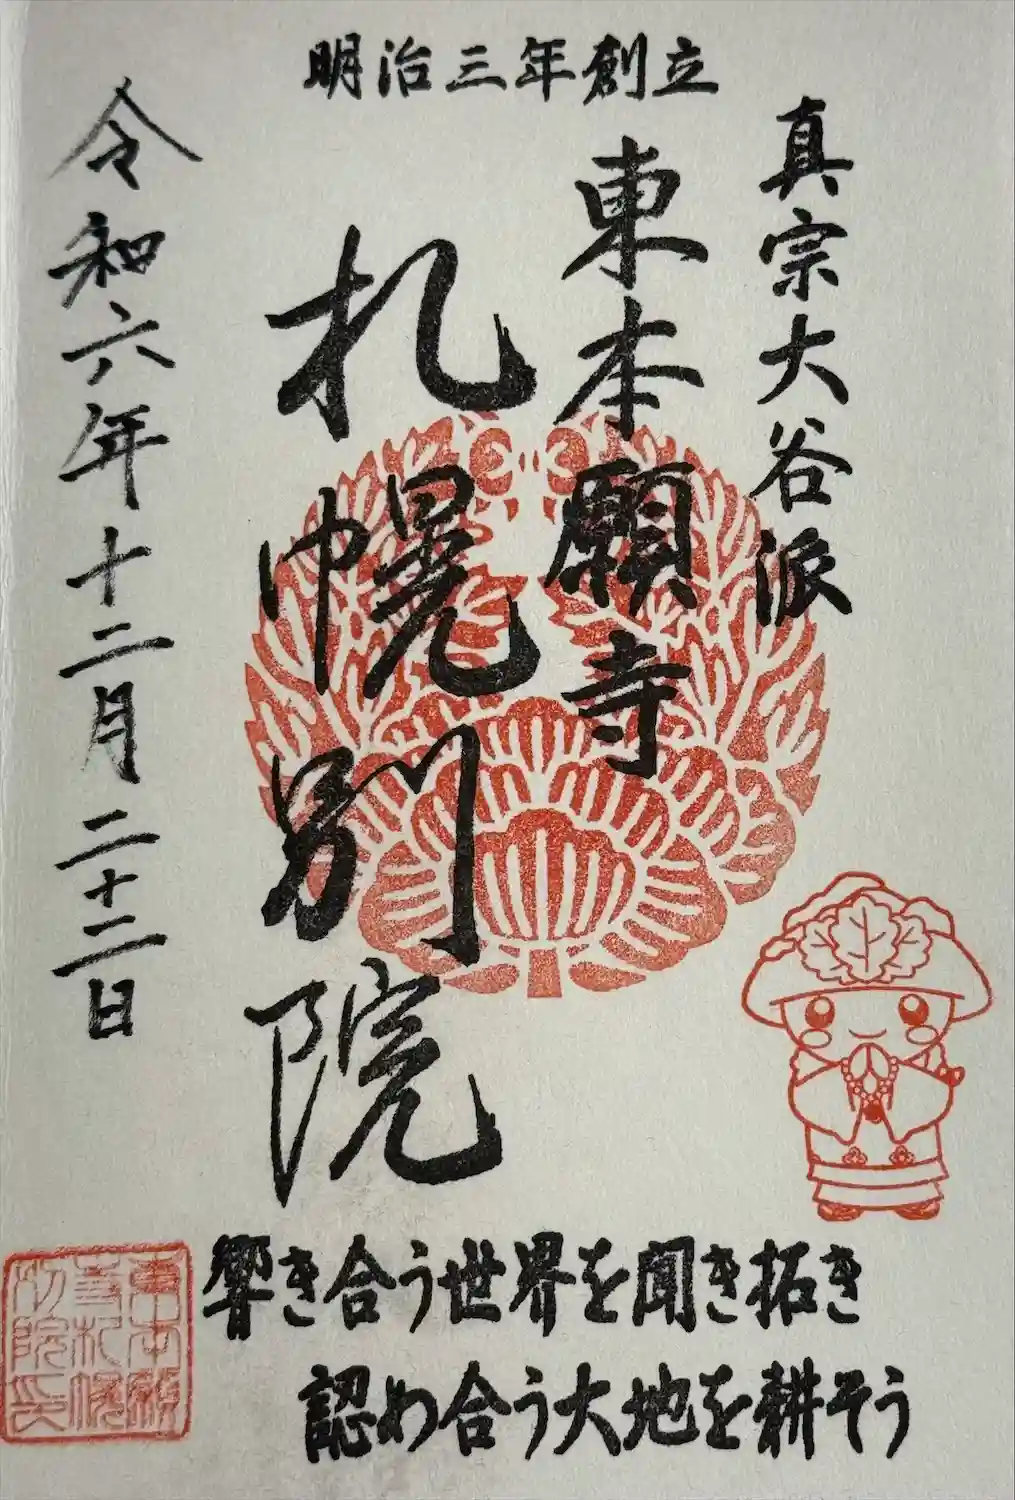 明治三年創立
真宗大谷派
東本願寺
札幌別院
令和六年十二月二十二日
響き合う世界を聞き拓き
認め合う大地を耕そう
東本願
寺札幌
別院印